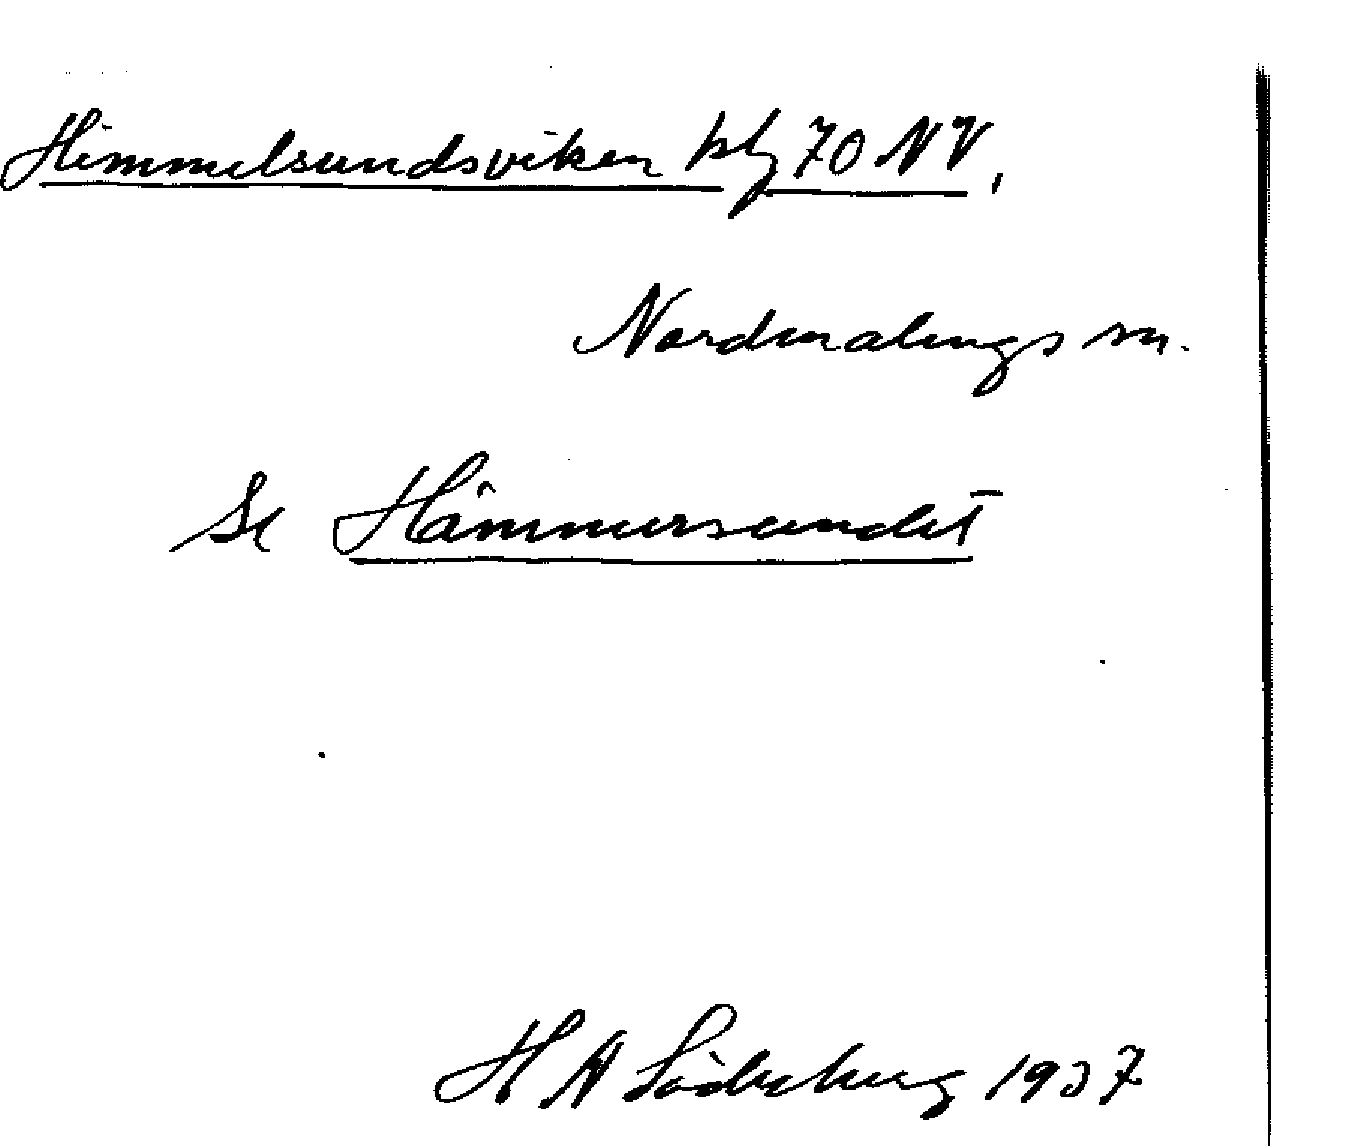 Himmelsundsviken kbl 70 NV,
Nordmalings sn.
Se Hämmersundet
H N Söderberg 1937